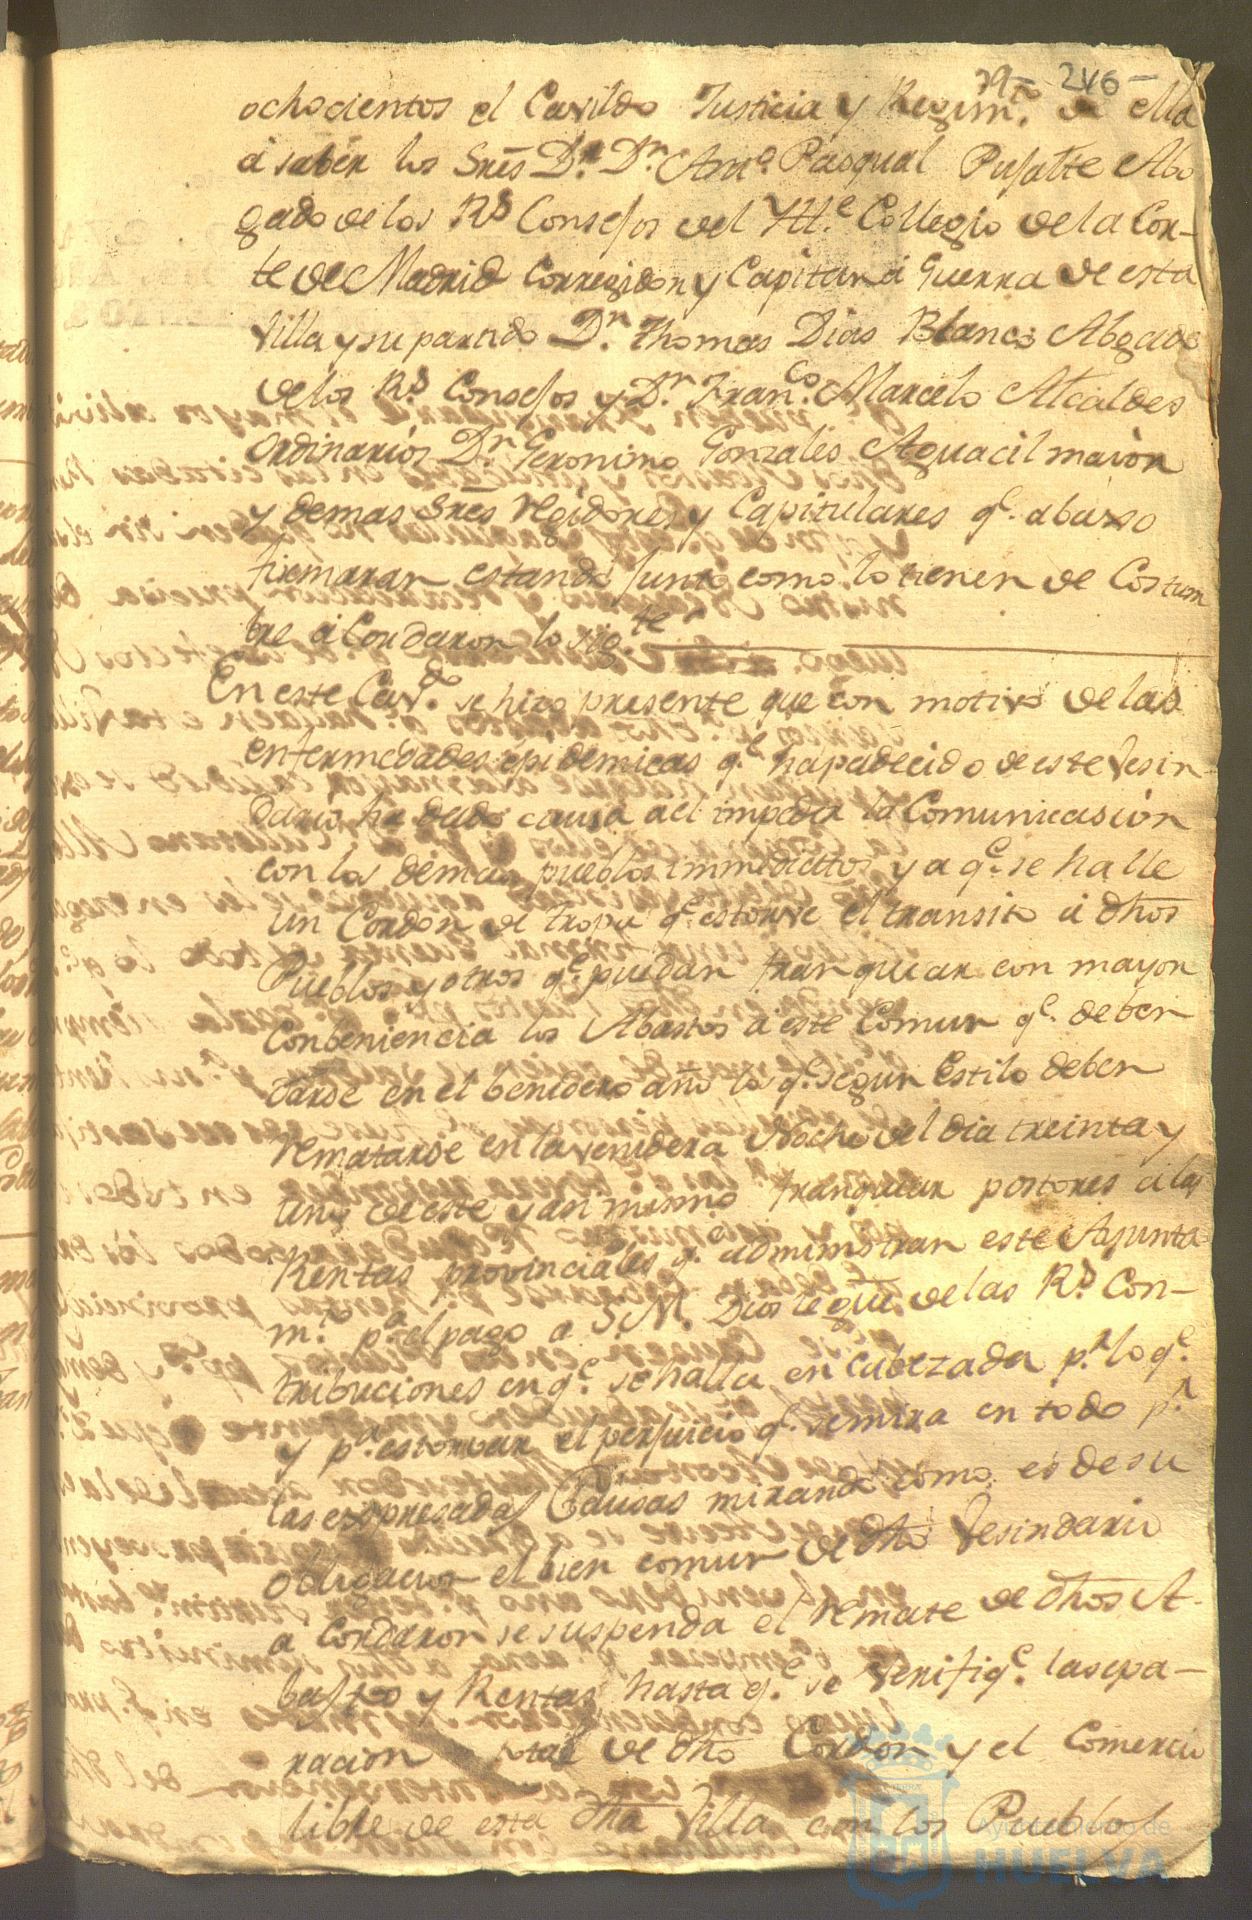 79 246
ochocientos el Cavildo Justicia y Regim.to de ella
á saber los Sres Dn. Dn. Antº Pasqual Pusalte Abo
gado de los Rs Consejos del Ylle. Collegio de la Cor-
te de Madrid Corregidor y Capitan á Guerra de esta
Villa y su partido Dn. Thomas Dias Blanco Abogado
de los Rs. Consejos y Dn. Franco. Marcelo Alcaldes
Ordinarios Dn. Geronimo Gonzales Aguacil maior
y demas Sres Regidores y Capitulares q.e abaxo
firmaran estando Junto como lo tienen de Costum
bre á Cordaron lo sig.te
En este Cavdo. se hizo presente que con motivo de las
enfermedades epidemicas q.e ha padecido de este Vesin
dario ha dado causa ael impedir la Comunicasion
con los demas pueblos immediattos y a q.e se halle
un Cordon de tropa q.e estorve el transito á dhos
Pueblos y otros q.e puedan franquear con mayor
Conbeniencia los Abastos á este Comun q.e deben
darse en el benidero año los q.e segun Estilo deben
Rematarse en la venidera Noche del dia treinta y
uno de este y asi mismo franquear postores á las
Rentas provinciales q.e administran este Ajunta
m.to p.a el pago a S. M. Dios le gue. de las Rs Con-
tribuciones en q.e se halla encabezada p.r lo q.e
y p.a estorvar el perjuicio q.e se mira en todo p.r
las expresadas Causas mirando como es de su
obligacion el bien comun de dho Vesindario
á Cordaron se suspenda el Remate de dhos A-
bastos y Rentas hasta q.e se verifiq.e la sepa-
racion total de dho Cordon y el Comercio
libre de esta dha Villa con los Pueblos
Ayuntamiento de
HUELVA